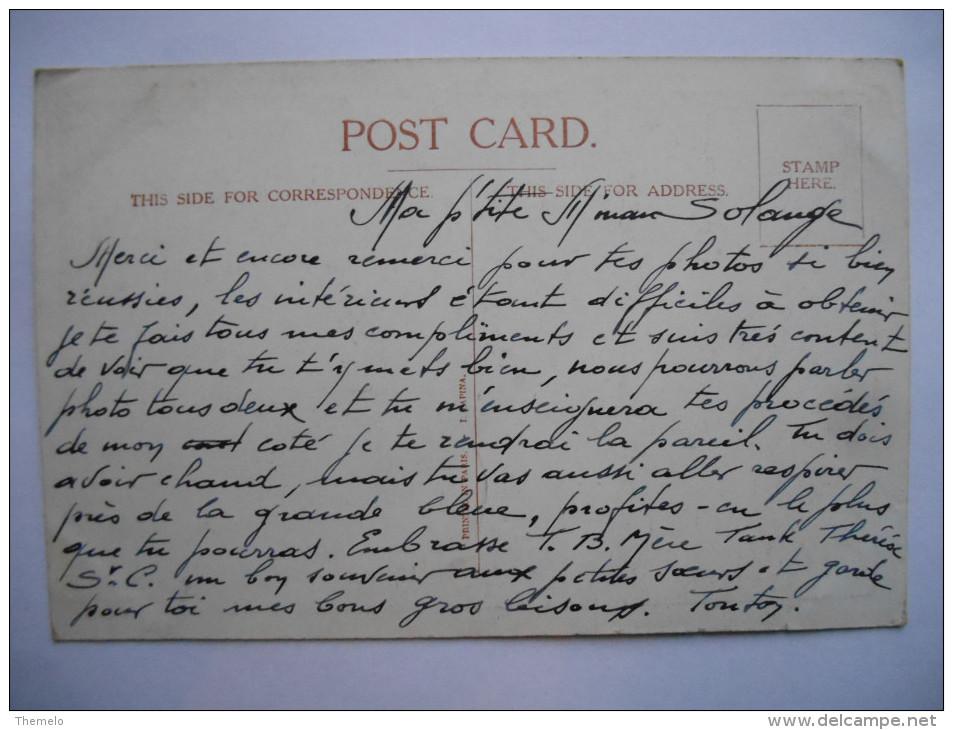 POST CARD.
THIS SIDE FOR CORRESPONDENCE.
THIS SIDE FOR ADDRESS.
STAMP
HERE.
Ma p'tite Minan Solange
Merci et encore remerci pour tes photos si bien
réussies, les intérieurs étant difficiles à obtenir
je te fais tous mes compliments et suis très content
de voir que tu t'y mets bien, nous pourrons parler
photo tous deux et tu m'enseignera tes procédés
de mon coté je te rendrai la pareil. Tu dois
avoir chaud, mais tu vas aussi aller respirer
près de la grande bleue, profites-en le plus
que tu pourras. Embrasse T. B. Mère Tank Thérèse
Sr. C. un bon souvenir aux petites sœurs et garde
pour toi mes bons gros baisons. Tonton.
PRINTED IN PARIS. I. LAPINA.
Themelo
www.delcampe.net